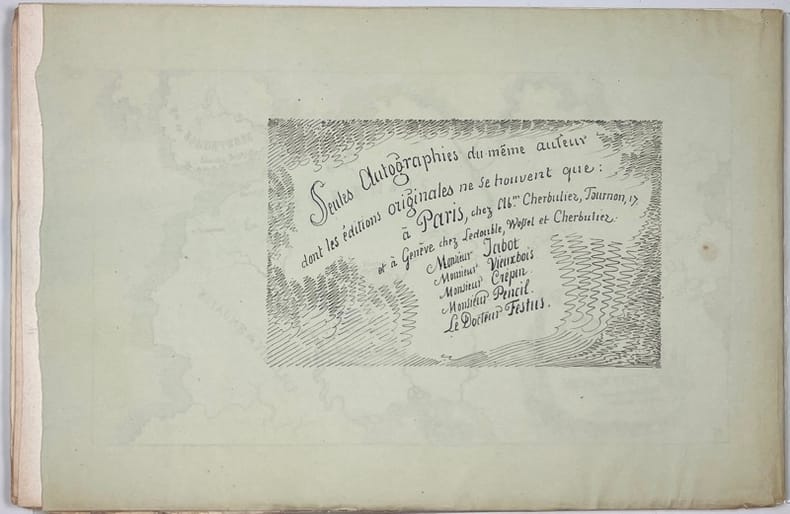 Seules Autographies du même auteur
dont les éditions originales ne se trouvent que :
à Paris, chez Ab.m Cherbuliez, Tournon, 17
et à Genève chez Ledouble, Wessel et Cherbuliez.
Monsieur Jabot
Monsieur Vieuxbois
Monsieur Crépin.
Monsieur Pencil.
Le Docteur Festus.